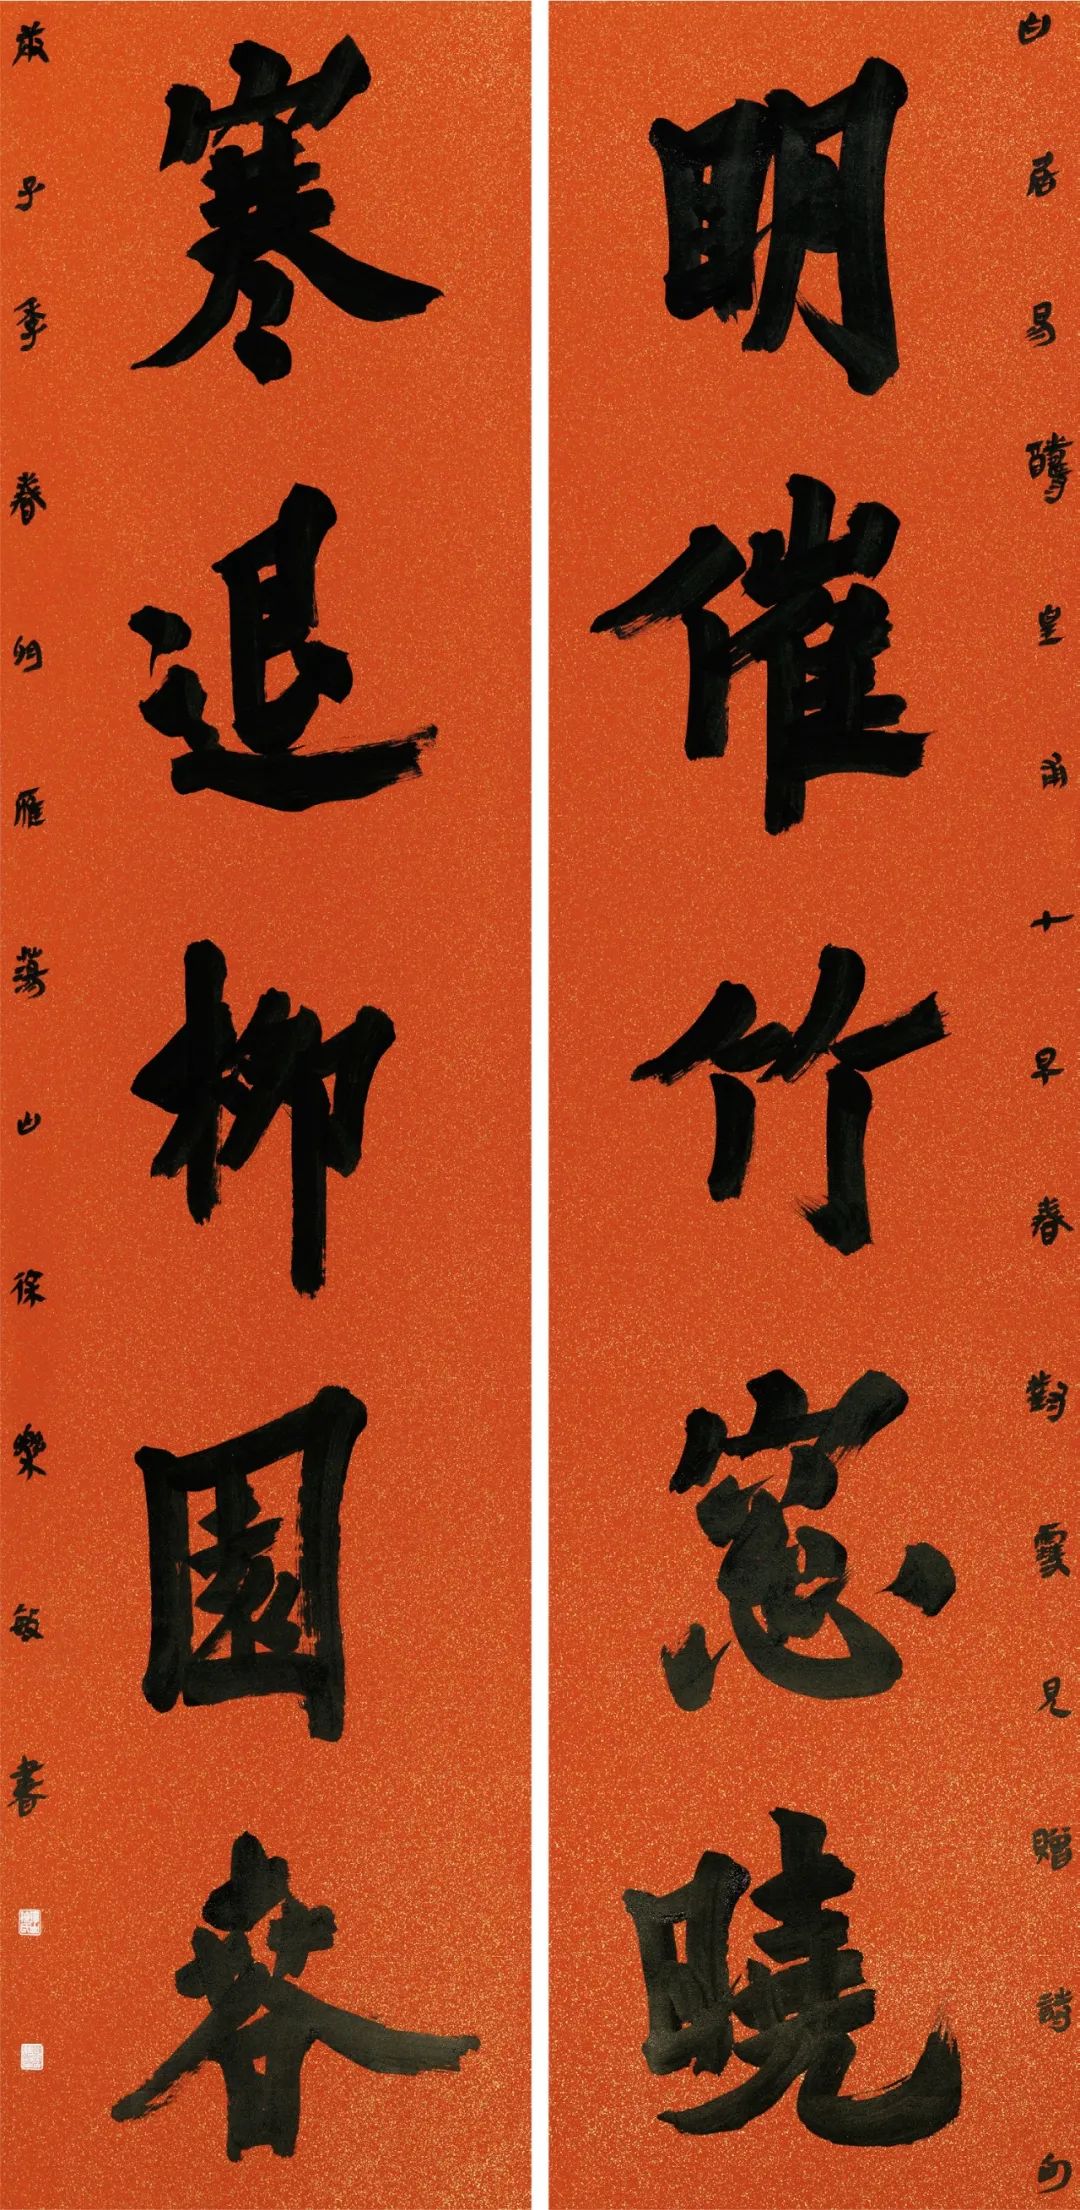 白居易醻皇甫十早春對雪見贈詩句
明催竹窓曉
寒退柳園春
庚子季春 雁蕩山徐樂敏書